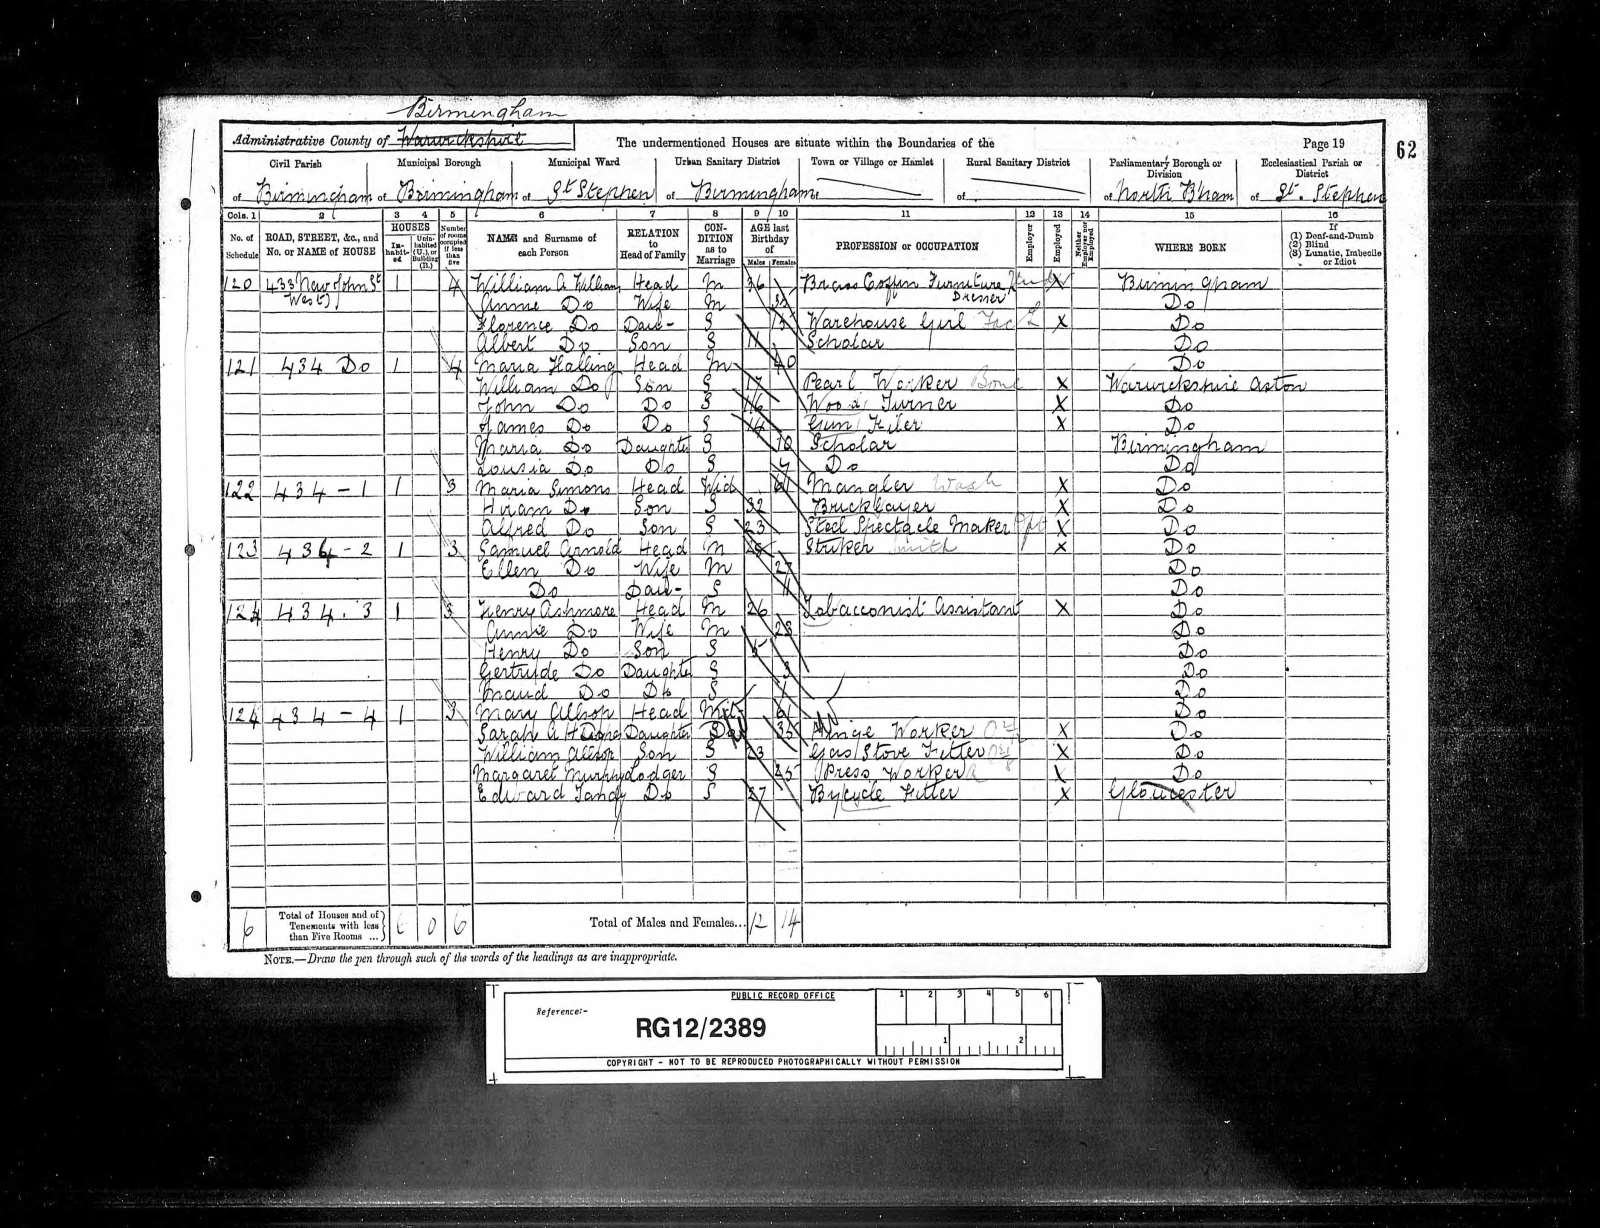 Birmingham
Administrative County of Warwickshire The undermentioned Houses are situate within the Boundaries of the Page 19 62
Civil Parish Municipal Borough Municipal Ward Urban Sanitary District Town or Village or Hamlet Rural Sanitary District Parliamentary Borough or Division Ecclesiastical Parish or District
of Birmingham of Birmingham of St Stephen of Birmingham of of of North B'ham of St. Stephen
Cols. 1 2 3 4 5 6 7 8 9 10 11 12 13 14 15 16
No. of Schedule ROAD, STREET, &c., and No. or NAME of HOUSE HOUSES In-habit-ed Unin-habited (U.), or Building (B.) Number of rooms occupied if less than five NAME and Surname of each Person RELATION to Head of Family CON-DITION as to Marriage AGE last Birthday of Males Females PROFESSION or OCCUPATION Employer Employed Neither Employer nor Employed WHERE BORN If (1) Deaf-and-Dumb (2) Blind (3) Lunatic, Imbecile or Idiot
120 433 New John St 1 4 William A Williams Head M 36 Brass Coffin Furniture X Birmingham
West) Annie Do Wife M Dresser Do
Florence Do Dau- S 15 Warehouse Girl X Do
Albert Do Son S 11 Scholar Do
121 434 Do 1 4 Maria Halling Head M 40 Do
William Do Son S 17 Pearl Worker Bone X Warwickshire Aston
John Do Do S 16 Wood Turner X Do
James Do Do S 14 Gun Filer X Do
Maria Do Daughter S 10 Scholar Birmingham
Lousia Do Do S 7 Do Do
122 434 - 1 1 3 Maria Simons Head Wid 61 Mangler Wash X Do
Hiram Do Son S 32 Bricklayer X Do
Alfred Do Son S 23 Steel Spectacle Maker X Do
123 434 - 2 1 3 Samuel Arnold Head M Striker Smith X Do
Ellen Do Wife M 27 Do
Do Dau- S Do
124 434 . 3 1 3 Henry Ashmore Head M 26 Tobacconist Assistant X Do
Annie Do Wife M 28 Do
Henry Do Son S 5 Do
Gertrude Do Daughter S 3 Do
Maud Do Do S 1 Do
124 434 - 4 1 3 Mary Allsop Head 61 Do
Sarah A Daughter 35 Hinge Worker X Do
William Allsop Son S 23 Gas Stove Fitter X Do
Margaret Murphy Lodger S 25 Press Worker X Do
Edward Tandy Do S 27 Bycycle Fitter X Gloucester
6 Total of Houses and of Tenements with less than Five Rooms ... 6 0 6 Total of Males and Females... 12 14
NOTE.—Draw the pen through such of the words of the headings as are inappropriate.
PUBLIC RECORD OFFICE 1 2 3 4 5 6
Reference:-
RG12/2389
1 2
COPYRIGHT - NOT TO BE REPRODUCED PHOTOGRAPHICALLY WITHOUT PERMISSION